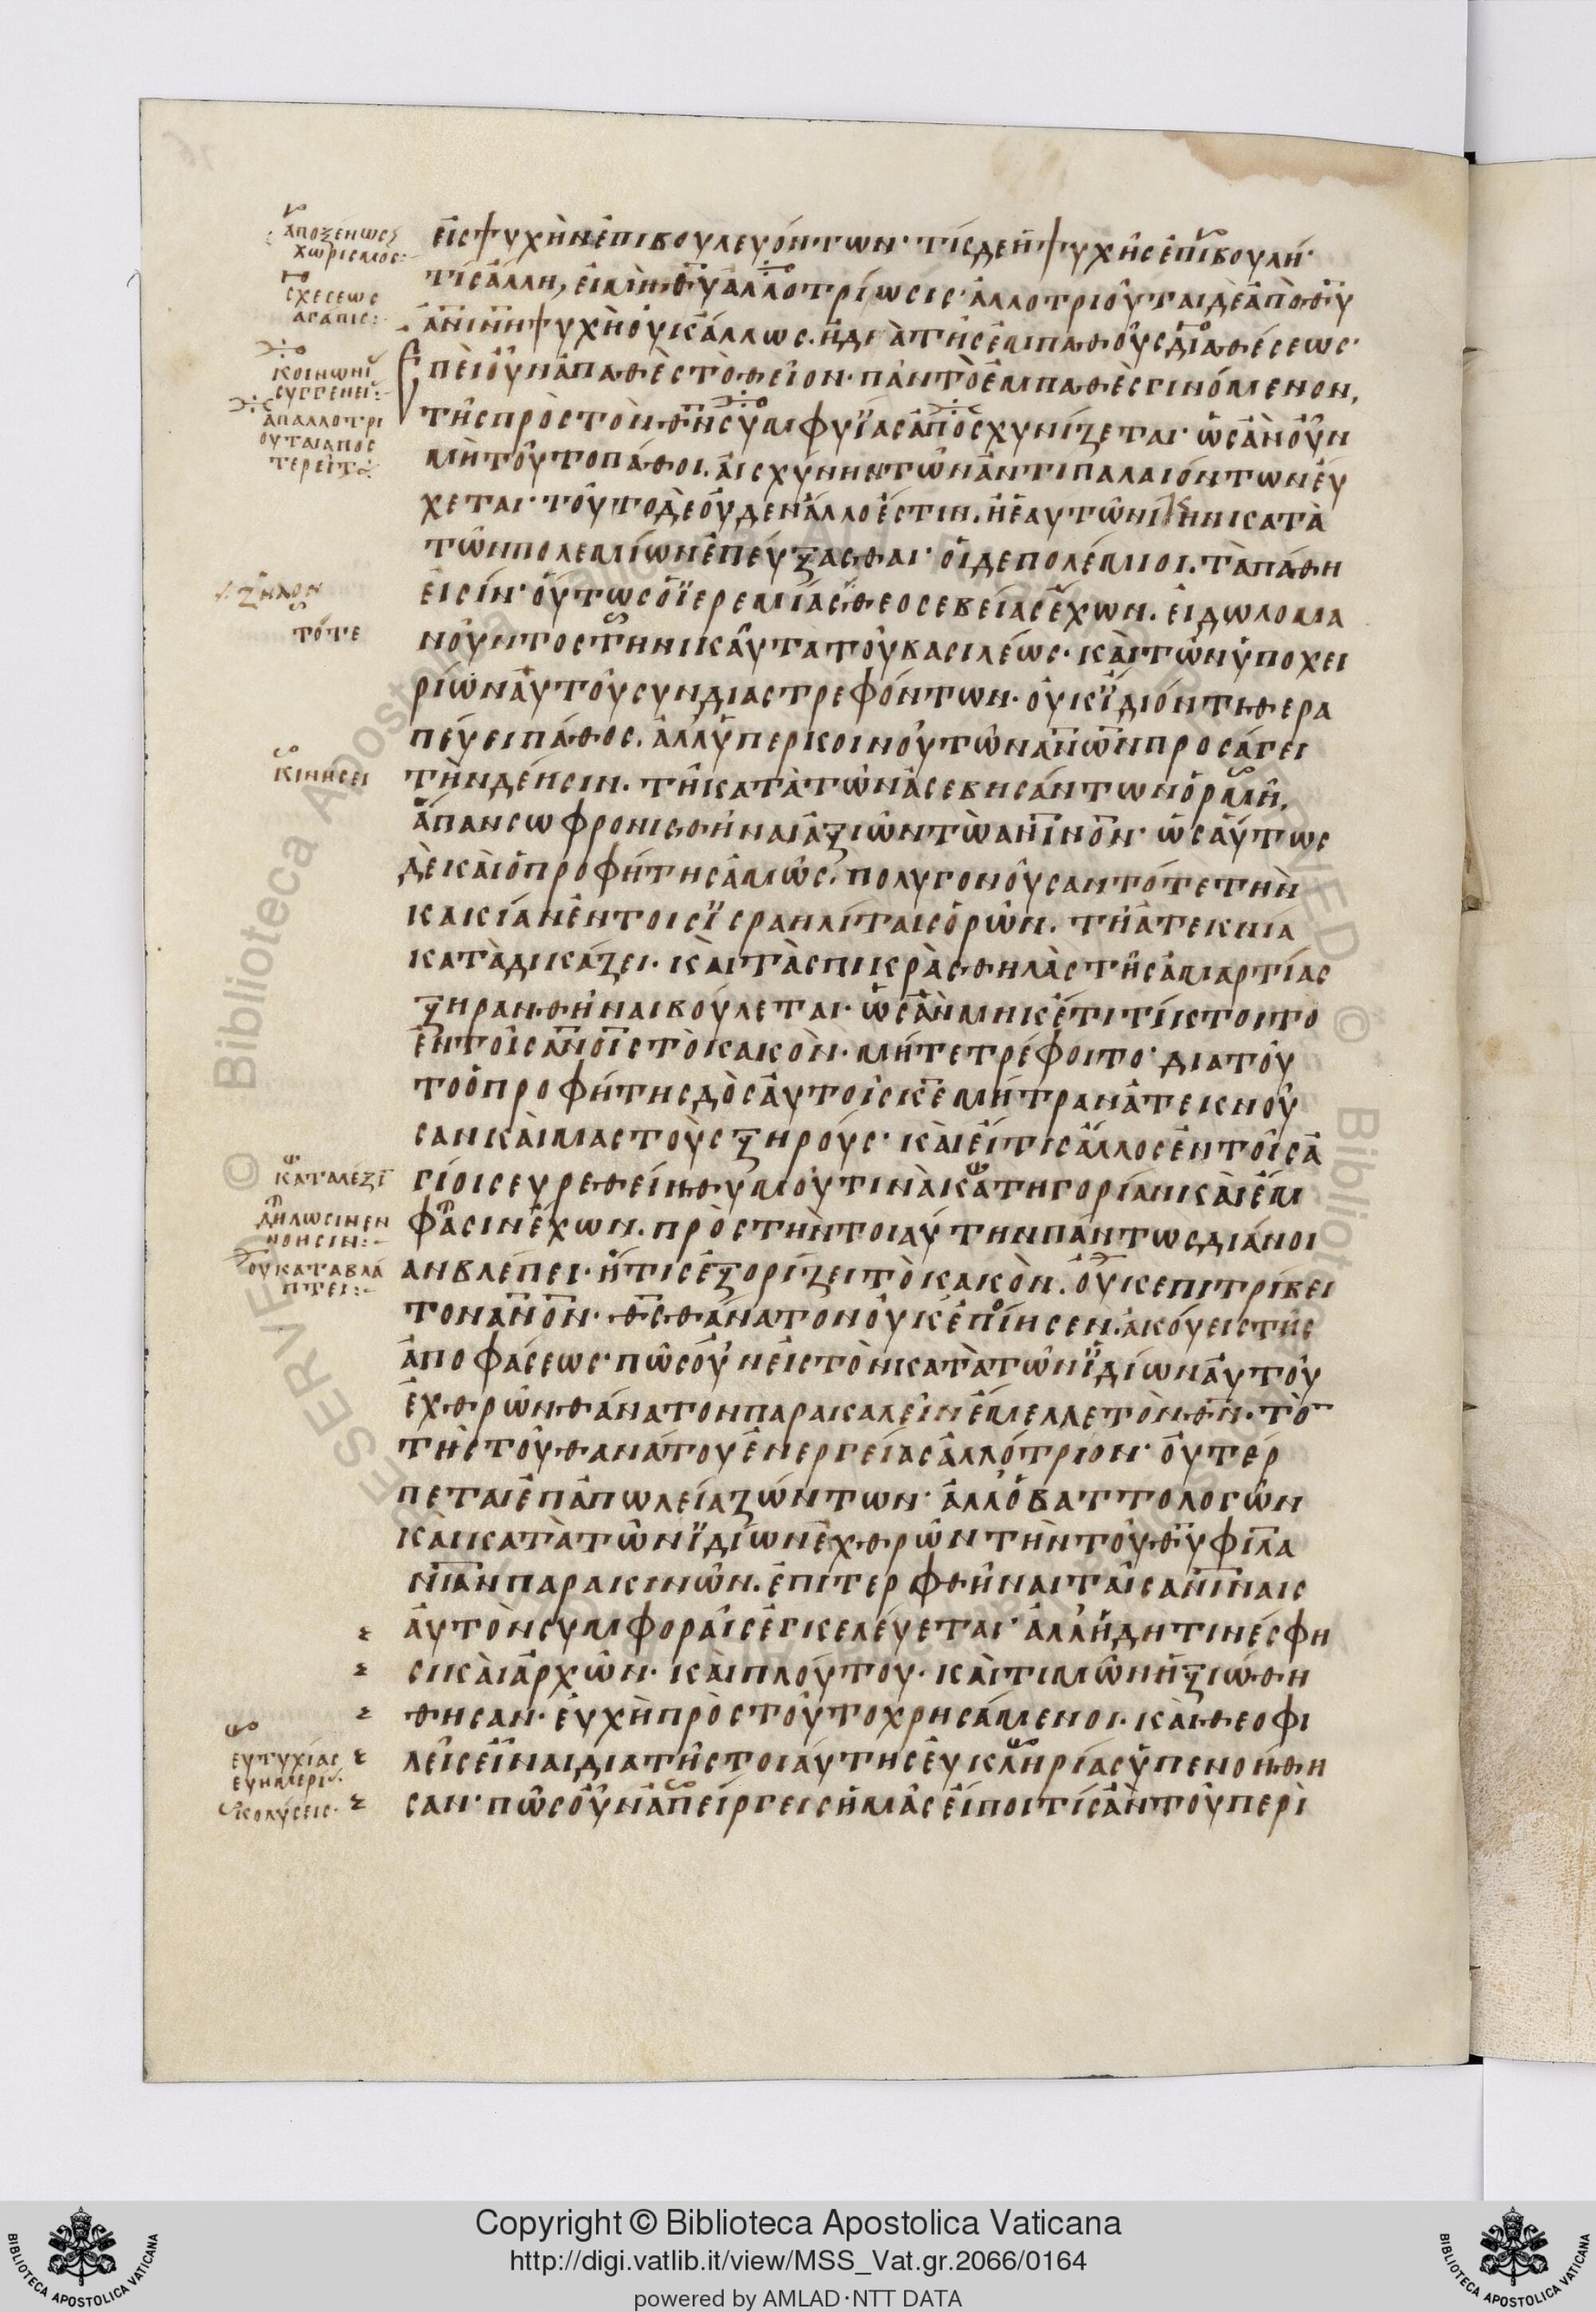 ἀποξένωσς
χωρισμος:
σχέσεως
ἀγάπις:
κοινωνί
συγγενεί:
ἀπαλλοτρι
οῦται ἀπος
τερεῖτ
ζῆλον
τότε
κινήσει
καταλεξι
δήλωσιν εν
νοησιν:
οὐ καταβλά
πτει:
ευτυχίας
ευημερι
κολύσεις
εἰς ψυχὴν ἐπιβουλευόντων· τίς δε ἡ ψυχῆς ἐπιβουλή·
τίς ἄλλη, εἰ μὴ θ̅υ̅ ἀλλοτρίωσις· ἀλλοτριοῦται δὲ ἀπὸ θ̅υ̅
α̅ν̅ι̅ν̅η ψυχὴ οὐκ ἄλλως. ἢ διὰ τῆς ἐμπαθοῦς διαθέσεως·
Ἐπεὶ οὖν ἀπαθὲς τὸ θεῖον· πᾶν τὸ ἐμπαθὲς γινόμενον,
τῆς πρὸς τὸν θ̅ν̅ συμφυΐας ἀποσχυνίζεται· ὡς ἂν οὖν
μὴ τοῦτο πάθοι. αἰσχύνην τῶν ἀντιπαλαιόντων εὐ
χεται· τοῦτο δὲ οὐδὲν ἄλλο ἐστιν. ἢ ἑαυτῶ νίκην κατὰ
τῶν πολεμίων ἐπεύξασθαι· οἱ δε πολέμιοι. τὰ πάθη
εἰσίν· οὕτως ὁ ἱερεμίας θεοσεβείας ἔχων. εἰδωλομα
νοῦντος τηνικαῦτα τοῦ βασιλέως· καὶ τῶν ὑποχει
ρίων αὐτοῦ συνδιαστρεφόντων· οὐκ ἴδιόν τι θερα
πεύει πάθος. ἀλλ' ὑπερ κοινοῦ τῶν α̅ν̅ω̅ν̅ προσάγει
τὴν δέησιν. τῆ κατὰ τῶν ἀσεβησάντων ὁρμῆ,
ἅπαν σωφρονισθῆναι ἀξιῶν τὼ α̅ν̅ι̅ν̅ον· ὡσαύτως
δὲ καὶ ὁ προφήτης ἀμώς. πολυγονοῦσαν τότε τὴν
κακίαν ἐν τοις ἰσραηλίταις ὁρῶν. τῆ ἀτεκνία
καταδικάζει. καὶ τὰς πικρὰς θηλὰς τῆς ἁμαρτίας
ξηρανθῆναι βούλεται· ὡς ἂν μηκέτι τίκτοιτο
ἐν τοῖς α̅ν̅ο̅ι̅ς τὸ κακὸν. μήτε τρέφοιτο· διατοῦ
το ὁ προφήτης δὸς αὐτοῖς κ̅ε̅ μήτραν ἀτεκνοῦ
σαν καὶ μαστοὺς ξηρούς· καὶ εἴ τις ἄλλος ἐν τοῖς ἁ
γίοις ευρεθείη θυμοῦ τινὰ κατηγορίαν καὶ ἔμ
φασιν ἔχων. πρὸς τὴν τοιαύτην πάντως διάνοι
αν βλέπει. ἥτις ἐξορίζει τὸ κακὸν. οὐκ επιτρίβει
τον α̅ν̅ο̅ν̅· θ̅ς̅ θάνατον οὐκ ἐποίησεν. ἀκούεις τῆς
ἀποφάσεως· πῶς οὖν εἰς τὸν κατὰ τῶν ἰδίων αὐτοῦ
ἐχθρῶν θάνατον παρακαλεῖν ἔμελλε τὸν θ̅ν̅· τὸ
τῆς τοῦ θανάτου ἐνεργείας ἀλλότριον· οὐ τέρ
πεται ἐπ' ἀπωλεία ζώντων· ἀλλ' ὁ βαττολογῶν
καὶ κατὰ τῶν ἰδίων ἐχθρῶν τὴν τοῦ θ̅υ̅ φιλα
ν̅ι̅αν παρακινῶν. ἐπιτερφθῆναι ταῖς α̅ν̅ι̅ναις
αὐτὸν συμφοραῖς ἐγκελεύεται· ἀλλ' ἤδη τινές φη
σι καὶ ἀρχῶν. καὶ πλούτου. καὶ τιμῶν ἠξιώθη
θησαν· εὐχὴ πρὸς τοῦτο χρησάμενοι. καὶ θεοφι
λεῖς εἶναι δια τῆς τοιαύτης εὐκληρίας ὑπενοήθη
σαν· πῶς οὖν ἀπείργεις ἡμᾶς εἴποι τίς ἂν τοῦ περὶ
© Biblioteca Apostolica
Copyright © Biblioteca Apostolica Vaticana
http://digi.vatlib.it/view/MSS_Vat.gr.2066/0164
powered by AMLAD·NTT DATA
BIBLIOTECA APOSTOLICA VATICANA
BIBLIOTECA APOSTOLICA VATICANA